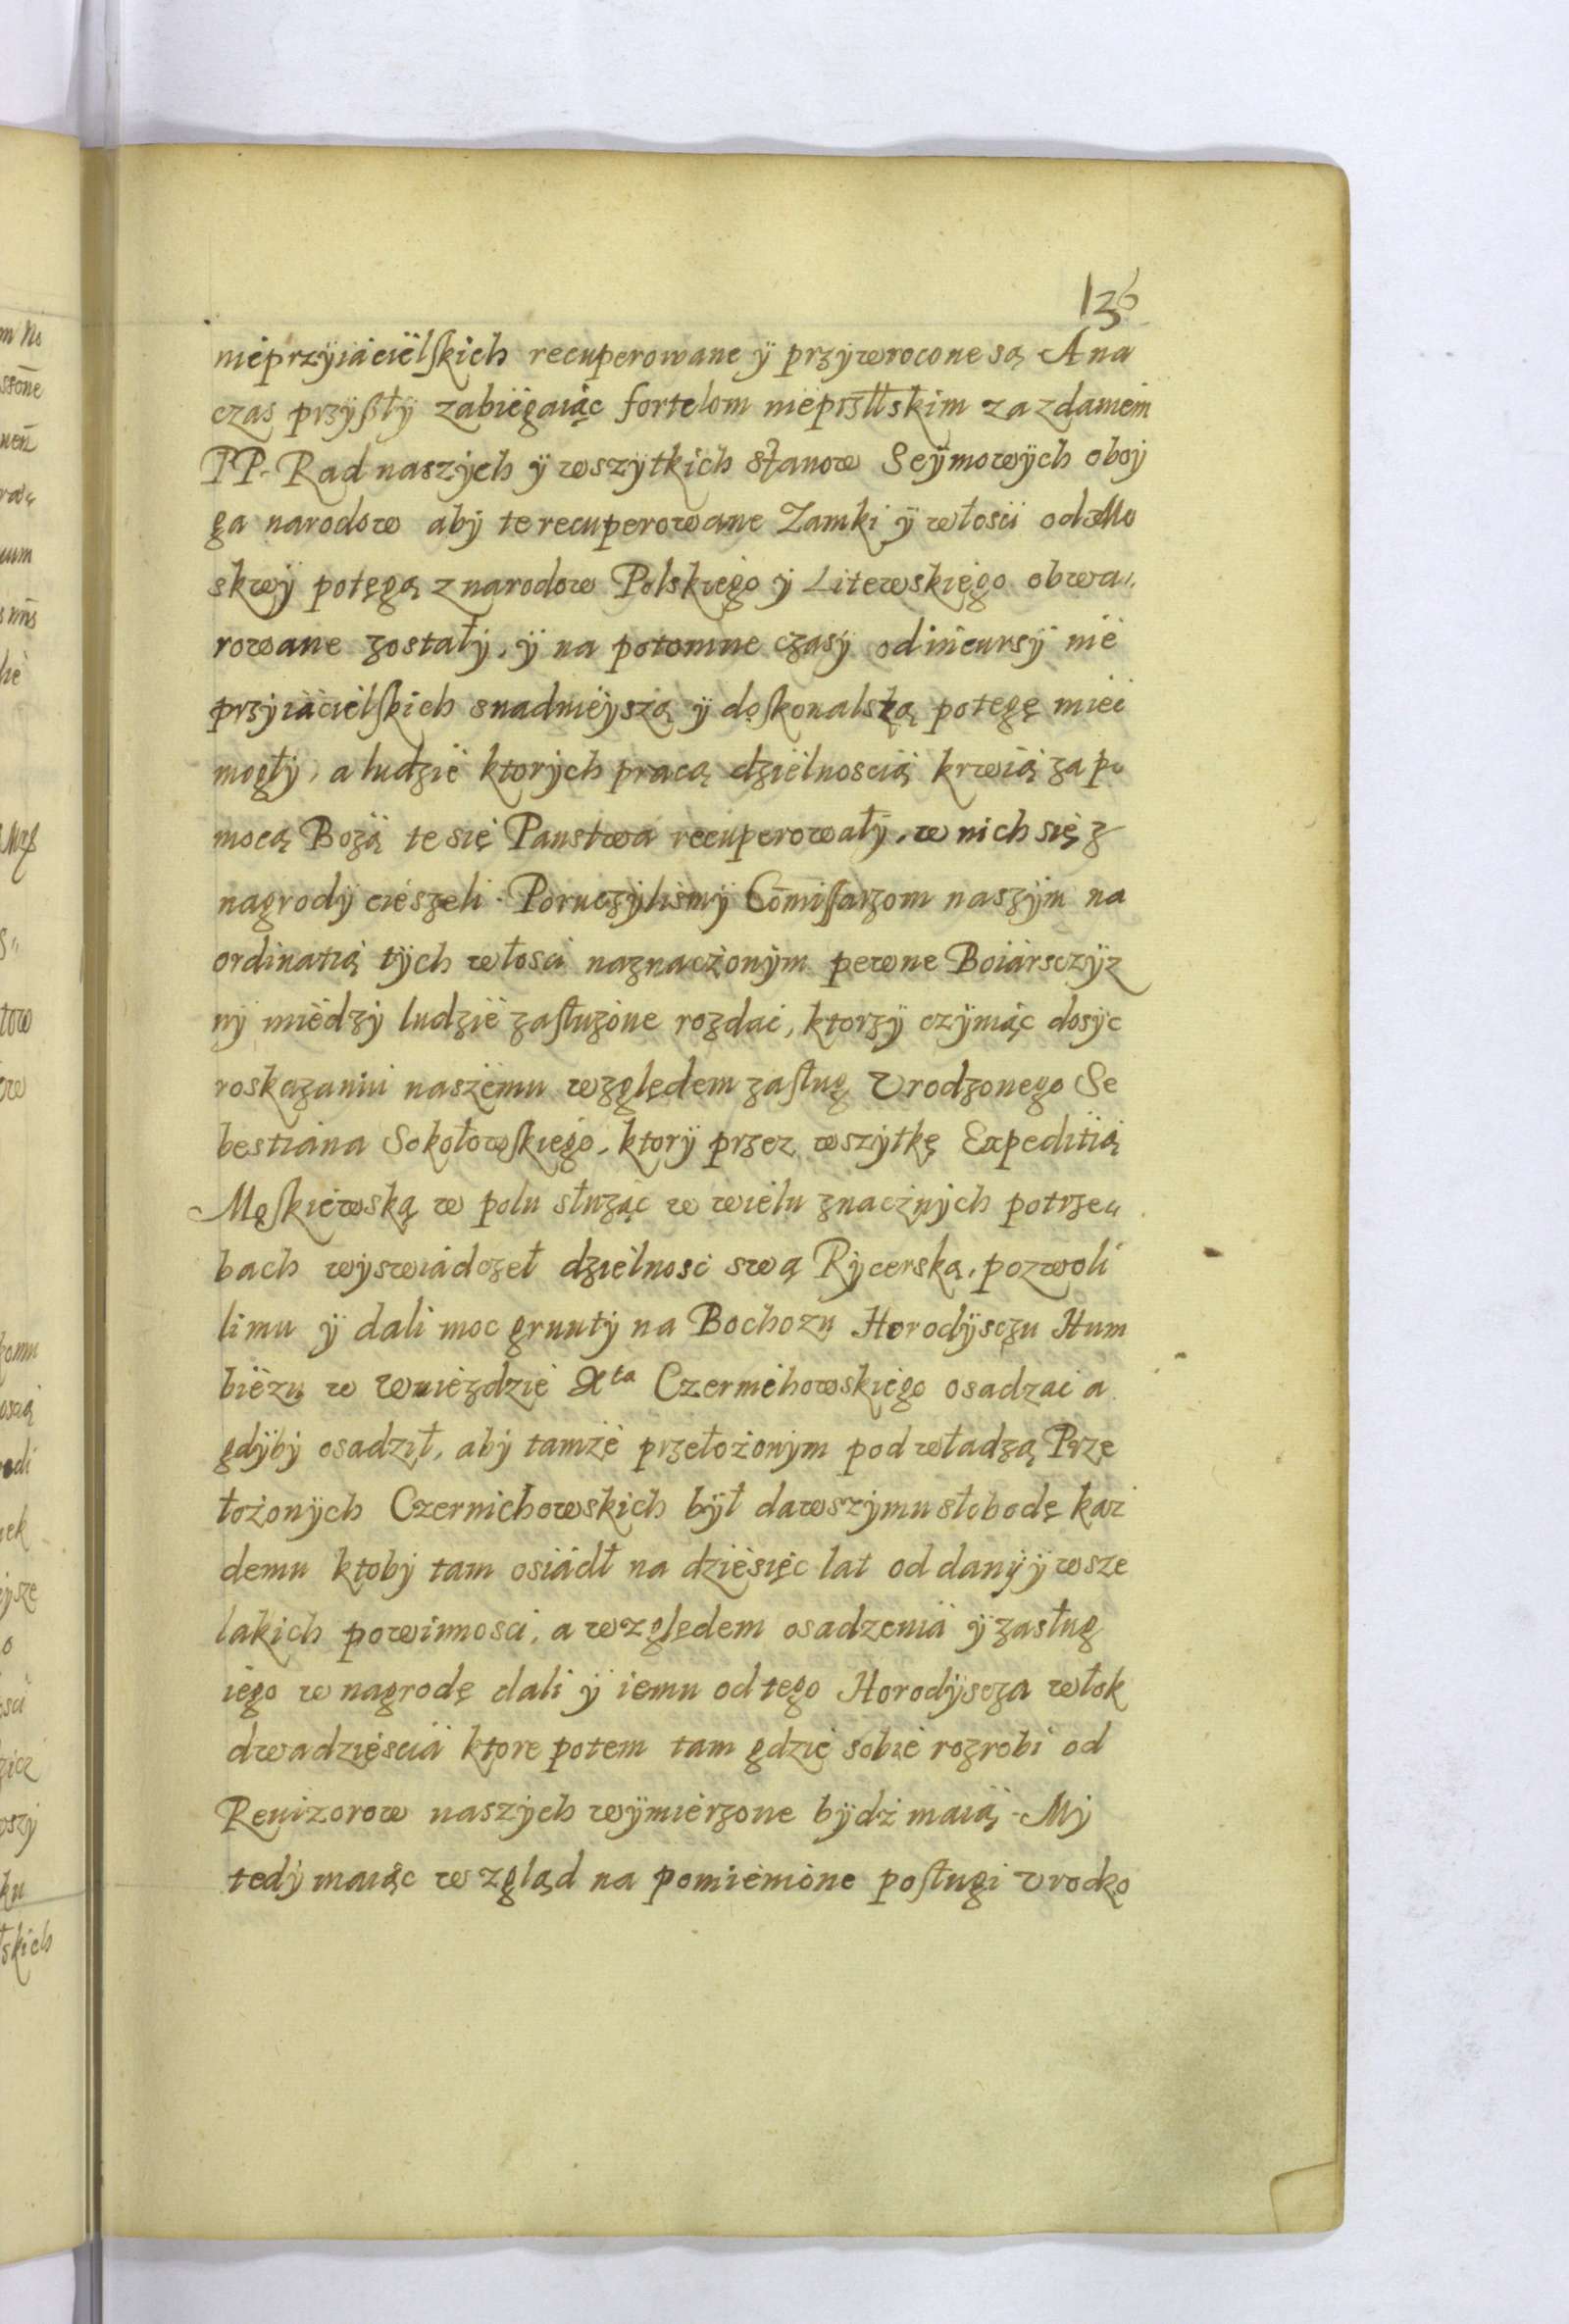 136
nieprzyiacielskich recuperowane ÿ przywrocone są A na
czas przyszłÿ zabiegaiąc fortelom nieprzłłskim za zdaniem
PP. Rad naszych ÿ wszytkich stanow Seÿmowÿch oboÿ
ga narodow abÿ te recuperowane Zamki ÿ włosci od Mo
skwÿ potęgą z narodow Polskiego ÿ Litewskiego obwa„
rowane zostałÿ, ÿ na potomne czasÿ od incursÿ nie
przyiacielskich snadnieÿszą ÿ doskonalszą potegę miec
mogłÿ, a ludzie ktorÿch pracą dzielnoscią krwią za po
mocą Bozą te się Panstwa recuperowałÿ, w nich się z
nagrodÿ cieszeli. Poruczÿlismÿ Com̄issarzom naszÿm na
ordinatią tÿch włosci naznaczonÿm pewne Boiarsczÿz
nÿ międzÿ ludzie zasłuzone rozdac, ktorzÿ czÿniąc dosÿc
roskazaniu naszemu względem zasług Vrodzonego Se
bestiana Sokołowskiego, ktorÿ przez wszÿtkę Expeditią
Moskiewską w polu słuząc w wielu znacznÿch potrze„
bach wÿswiadczeł dzielnosc swą Rÿcerską, pozwoli
li mu ÿ dali moc gruntÿ na Bochozu Horodÿsczu Hum
biezu w Wuiezdzie Xta Czerniehowskiego osadzac a
gdÿbÿ osadził, abÿ tamze przełozonÿm pod władzą Prze
łozonÿch Czernichowskich bÿł dawszÿ mu słobodę kaz
demu ktobÿ tam osiadł na dziesięc lat od danÿ ÿ wsze
lakich powinnosci, a względem osadzenia ÿ zasług
iego w nagrodę dali ÿ iemu od tego Horodÿscza włok
dwadziescia ktore potem tam gdzie sobie rozrobi od
Reuizorow naszÿch wÿmierzone bÿdz maią. Mÿ
tedÿ maiąc wzgląd na pomienione posługi vrodzo